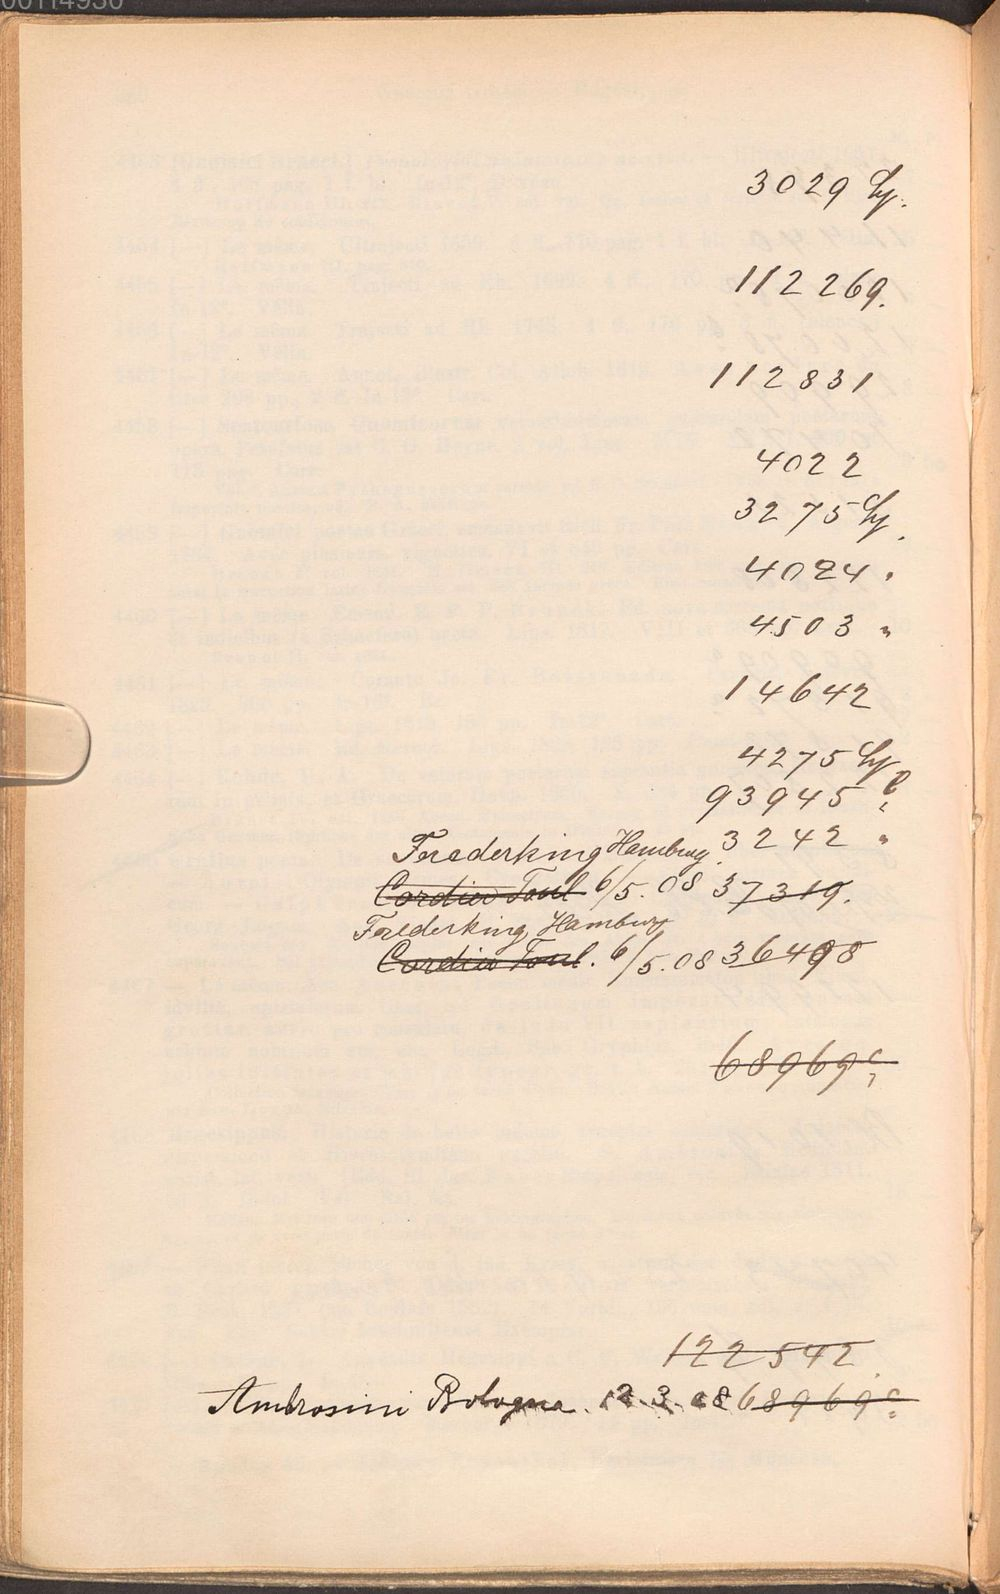 3029 Ly.
112269.
112831
4022
3275 Ly.
4024 "
4503 "
14642
4275 Ly
93945
Frederking Hamburg. 3242 "
Cordier Toul 6/5.08 37319.
Frederking, Hamburg
Cordier Toul. 6/5.08 36498
68969c
122542
Ambrosini Bologna. 12.3.08 68969c